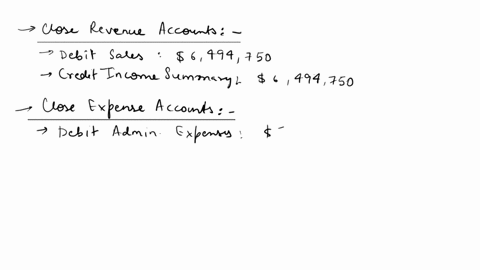 → Close Revenue Accounts:-
→ Debit Sales : $6,494,750
→ Credit Income Summary: $6,494,750
→ Close Expense Accounts:-
→ Debit Admin. Expenses: $